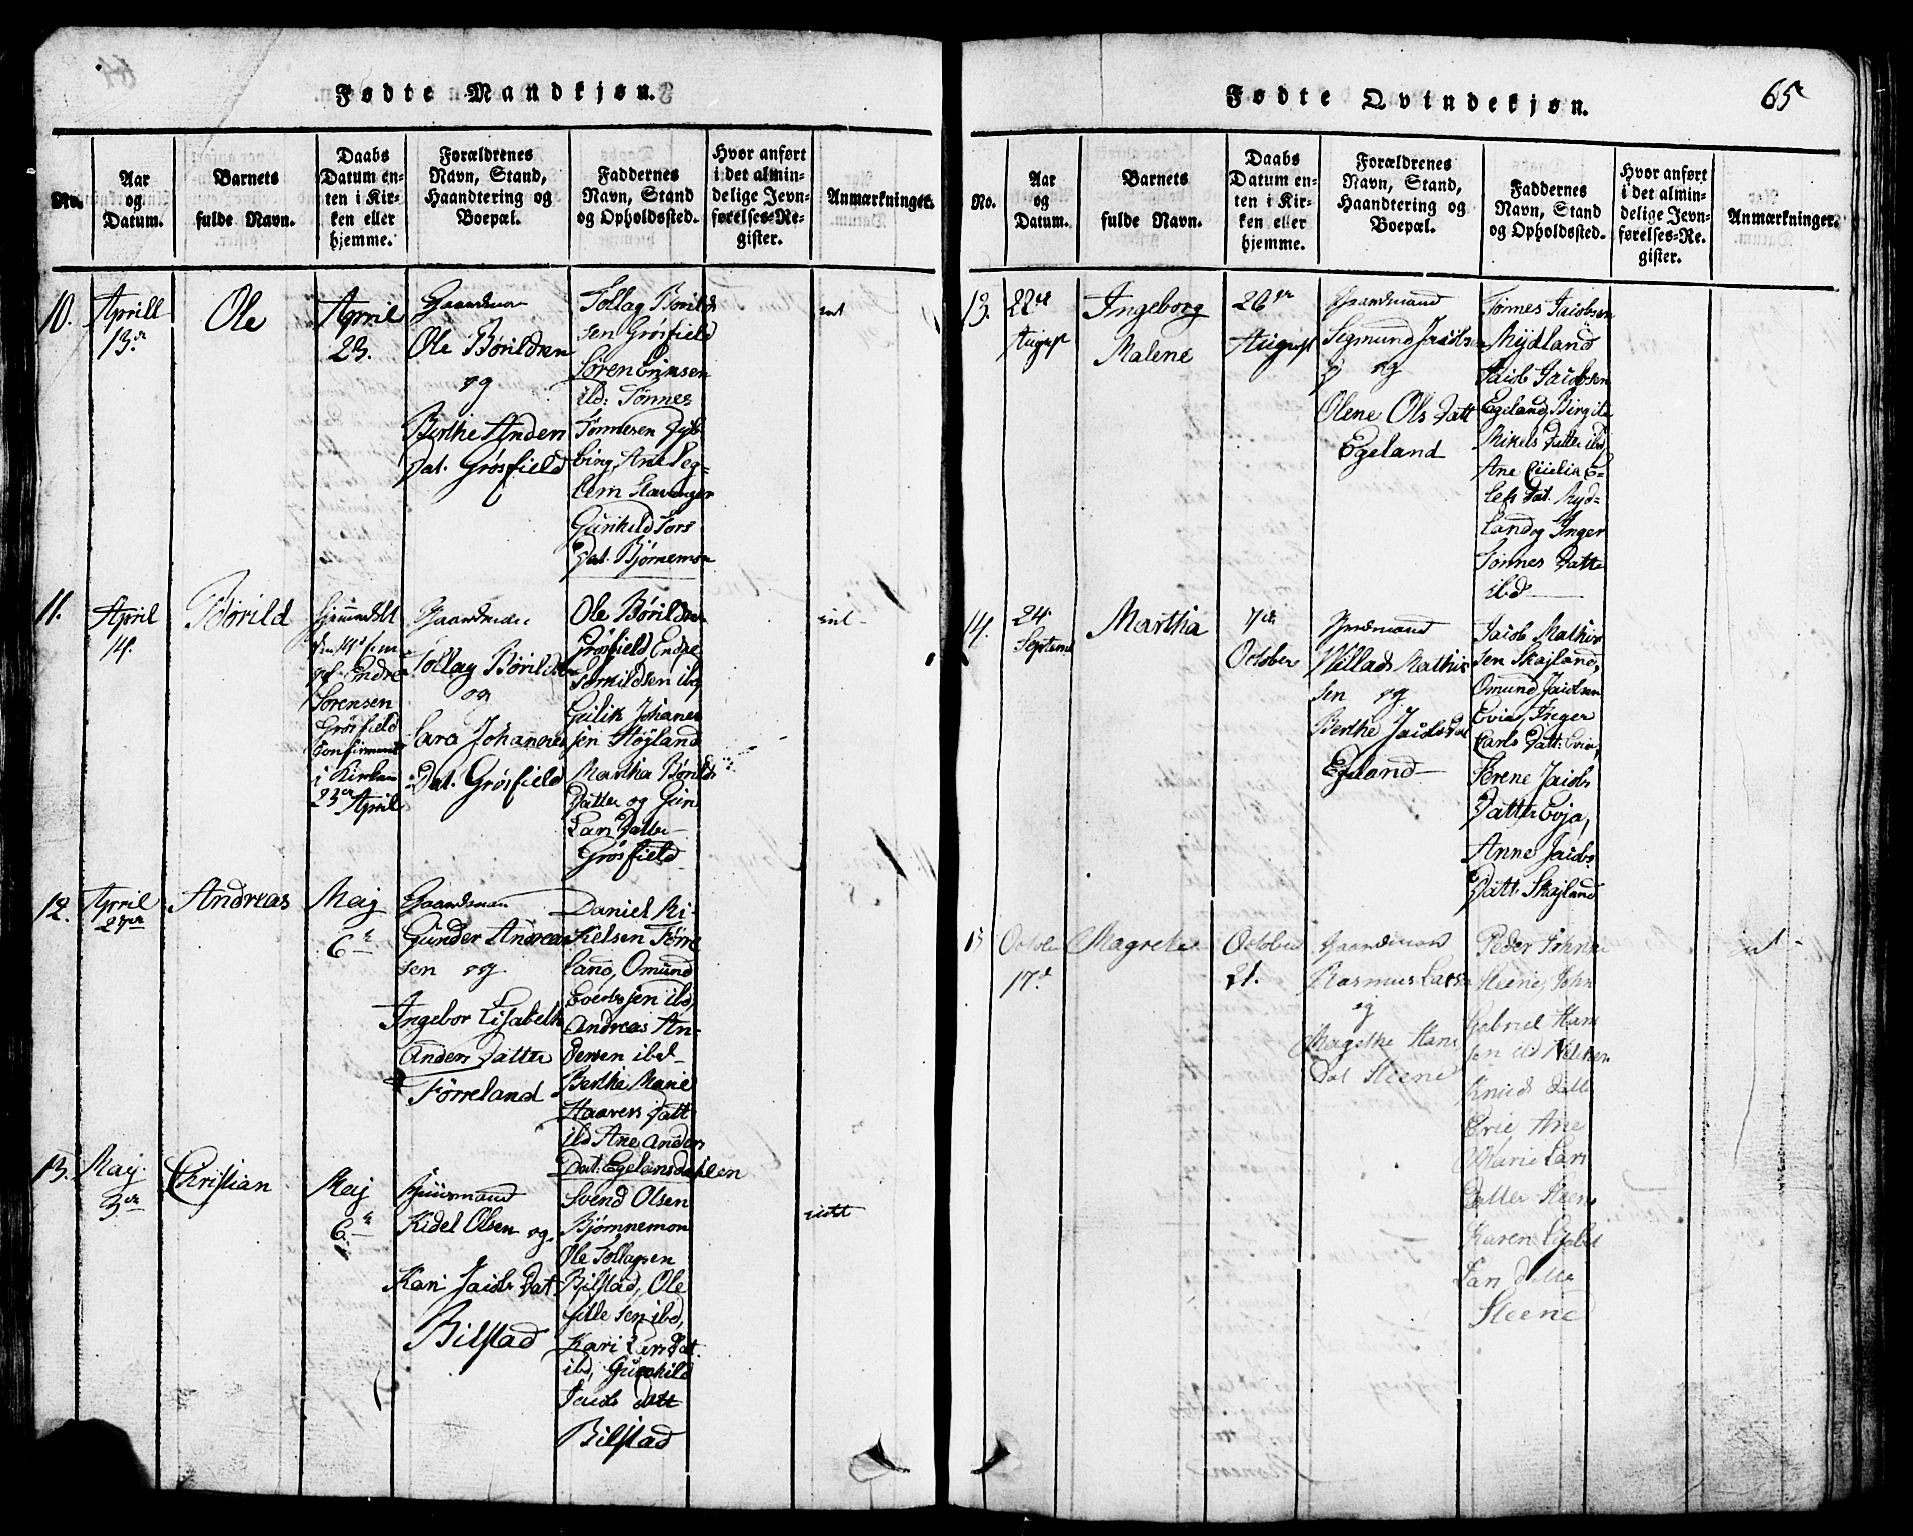 Fødte Mandkjøn.
No.
Aar
og
Datum.
Barnets
fulde Navn.
Daabs
Datum en-
ten i Kir-
ken eller
hjemme.
Forældrenes
Navn, Stand,
Haandtering og
Boepæl.
Faddernes
Navn, Stand
og Opholdssted.
Hvor anført
i det almin-
delige Jevn-
førelses-Re-
gister.
Anmærkninger.
10.
Aprill
13de
Ole
April
23.
Gaardman
Ole Børildsen
og
Berthe Anders
Dat. Grøsfield
Tollag Børilds
sen Grøsfield
Søren
ibd: Tønnes
Tønnesen
Ane
Stavanger
Gunhild Tors
Dat. Bjørnemon
11.
April
14.
Børild
af Endre
Sørensen
Grøsfield
i Kirken
23de April
Tollag Børilds
og
Sara Johannes
Dat. Grøsfield
Ole Børildsen
Grøsfield Endre
Torkildsen ibd
Johanes
sen Høyland
Martha Børilds
Datter og Gun
Lars Datter
Grøsfield
12.
April
27de
Andreas
Maj
6te
Gaardman
Gunder Andrea
sen og
Ingebor Lisabeth
Anders Datter
Førreland
Daniel Mi-
kelsen Førre
land, Omund
ibd,
Andreas An-
dersen ibd
Berthe Marie
Haavers Datt
ibd Ane Anders
Dat: Egelansdahlen
13.
Maj
3de
Christian
Maj
6te
Huusmand
Kidel Olsen og
Kari Jacobs Dat
Bilstad
Svend Olsen
Bjørnnemon
Ole Tollagsen
Bilstad, Ole
sen ibd,
Kari Lars Dat.
ibd, Gunhild
Jacobs datt
Bilstad
Fødte Qvindekjøn.
65
No.
Aar
og
Datum.
Barnets
fulde Navn.
Daabs
Datum en-
ten i Kir-
ken eller
hjemme.
Forældrenes
Navn, Stand,
Haandtering og
Boepæl.
Faddernes
Navn, Stand
og Opholdssted.
Hvor anført
i det almin-
delige Jevn-
førelses-Re-
gister.
Anmærkninger.
13.
22de
August
Ingeborg
Malene
26de
August
Gaardmand
Segmund Jacobsen
og
Olene Ols Datt
Egeland
Tønnes Jacobsen
Mydland
Jacob Jacobsen
Egeland, Birgite
Mikels Datter ibd,
Ane Cicilia E-
lefs Dat. Myd-
land og Inger
Tønnes Datte
ibd
14.
24
Septemb
Martha
7de
October
Gaardmand
Villads Mathis
sen og
Berthe Jacobs Dat
Egeland
Jacob Mathis
sen Skajland,
Omund Jacobsen
Evia, Inger
Carls Datt: Evia,
Serene Jacobs
Datter Evja,
Anne Jacobs
Datt. Skajland
15
Octobe
17de
Magrete
October
21.
Gaardmand
Rasmus Larsn
og
Magrethe Hans
Dat Steene
Peder Johne
Steene, John
Gabriel Hans
sen ibd
Knuds datte
Ane
Marie Lars
datter Steene
Karen Lisabet
Lars datte
Steene